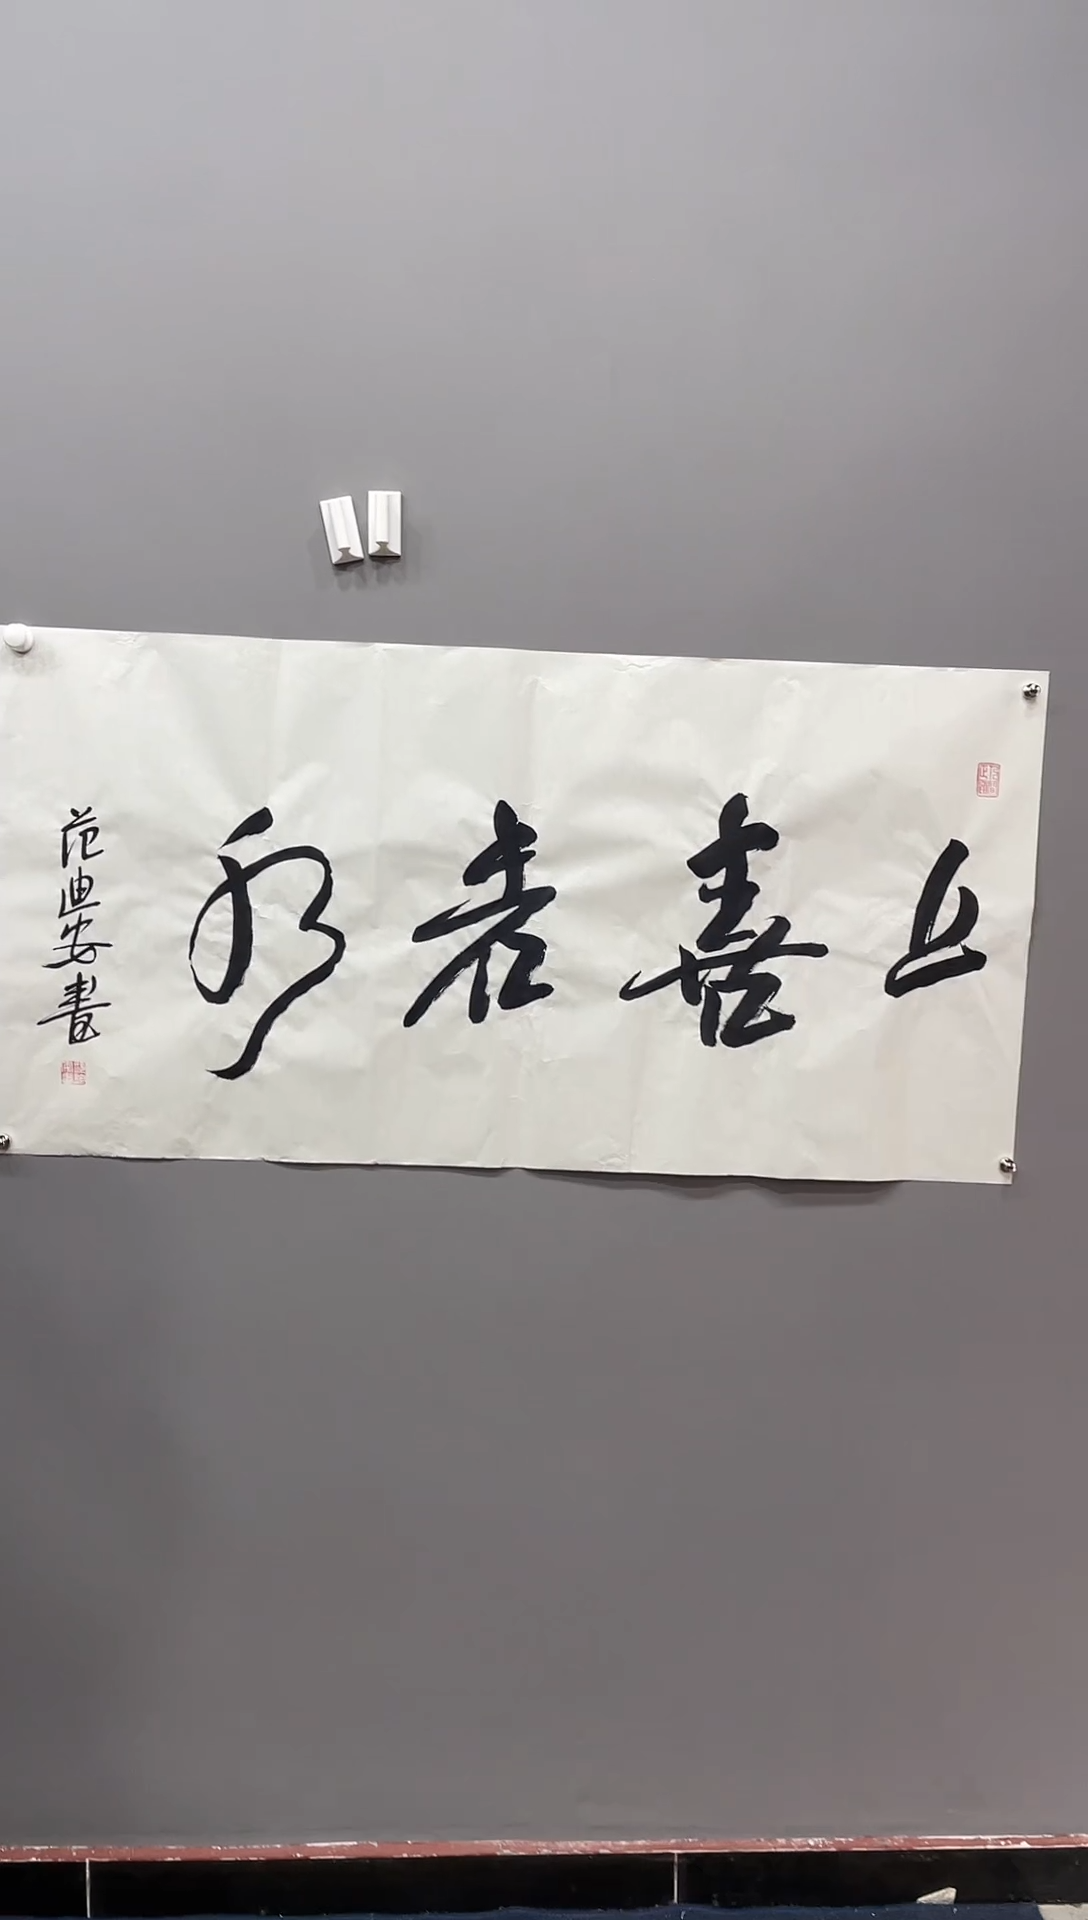 上善若水
范迪安書